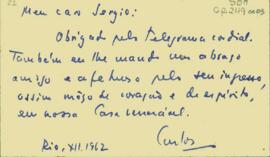 Meu caro Sergio:
Obrigado pelo telegrama cordial.
Também eu lhe mando um abraço
amigo e afetuoso pelo seu ingresso,
assim moço de coração e de espírito,
em nossa Casa venerável.
Rio, XII.1962 Carlos